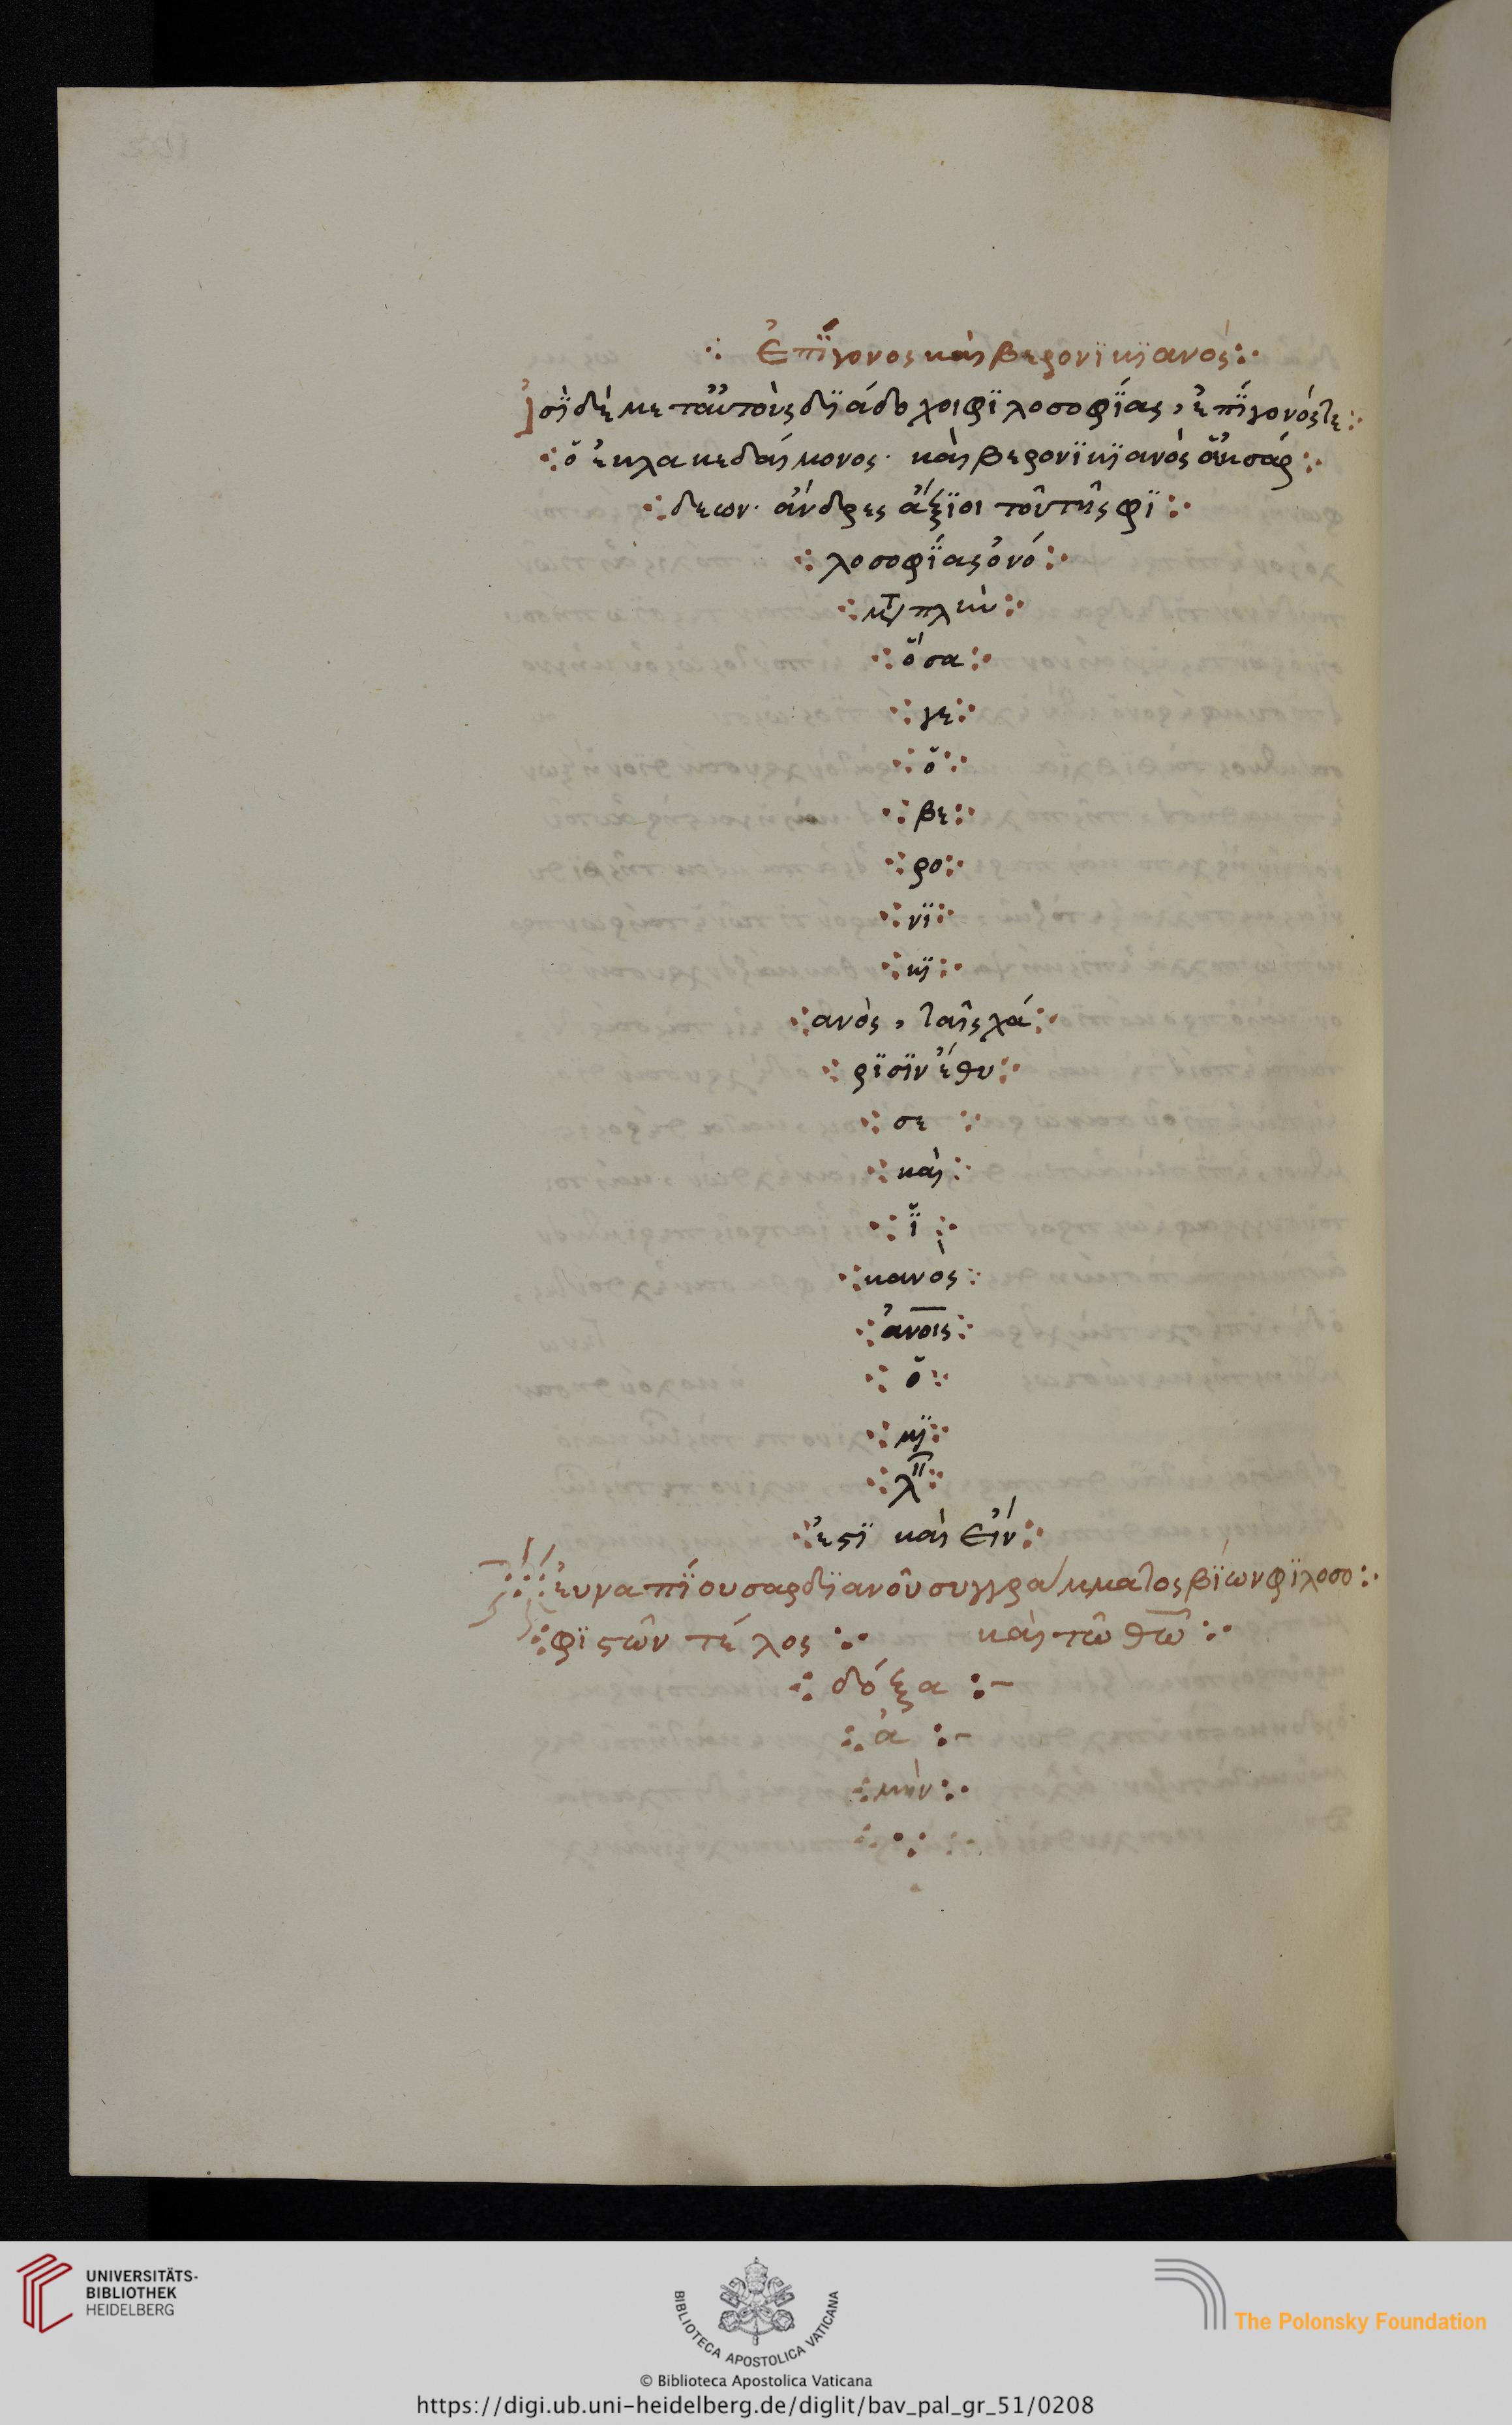 Ἐπΐγονος καὶ βερονϊκϊανός
εἰσϊ δὲ μετ' αὐτοὺς δϊάδοχοι φϊλοσοφΐας, ἐπΐγονός τε
ὁ ἐκ λακεδαίμονος· καὶ βερονϊκϊανὸς ὁ ἐκ σάρ
δεων· ἄνδρες ἄξϊοι τοῦ τῆς φϊ
λοσοφΐας ὀνό
μτ πλὴν
ὅσα
γε
ὁ
βε
ρο
νϊ
κϊ
ανὸς, ταῖς χά
ρϊσϊν ἔθυ
σε
καὶ
ἱ
κανὸς
ἀνοις
ὁ
μϊ
λ
ἐστϊ καὶ εἴη
ἐυναπΐου σαρδϊανοῦ συγγράμματος βΐων φϊλοσο
φϊστῶν τέλος καὶ τῶ θῶ
δόξα
ἀ
μήν
UNIVERSITÄTS-
BIBLIOTHEK
HEIDELBERG
BIBLIOTECA APOSTOLICA VATICANA
The Polonsky Foundation
© Biblioteca Apostolica Vaticana
https://digi.ub.uni-heidelberg.de/diglit/bav_pal_gr_51/0208